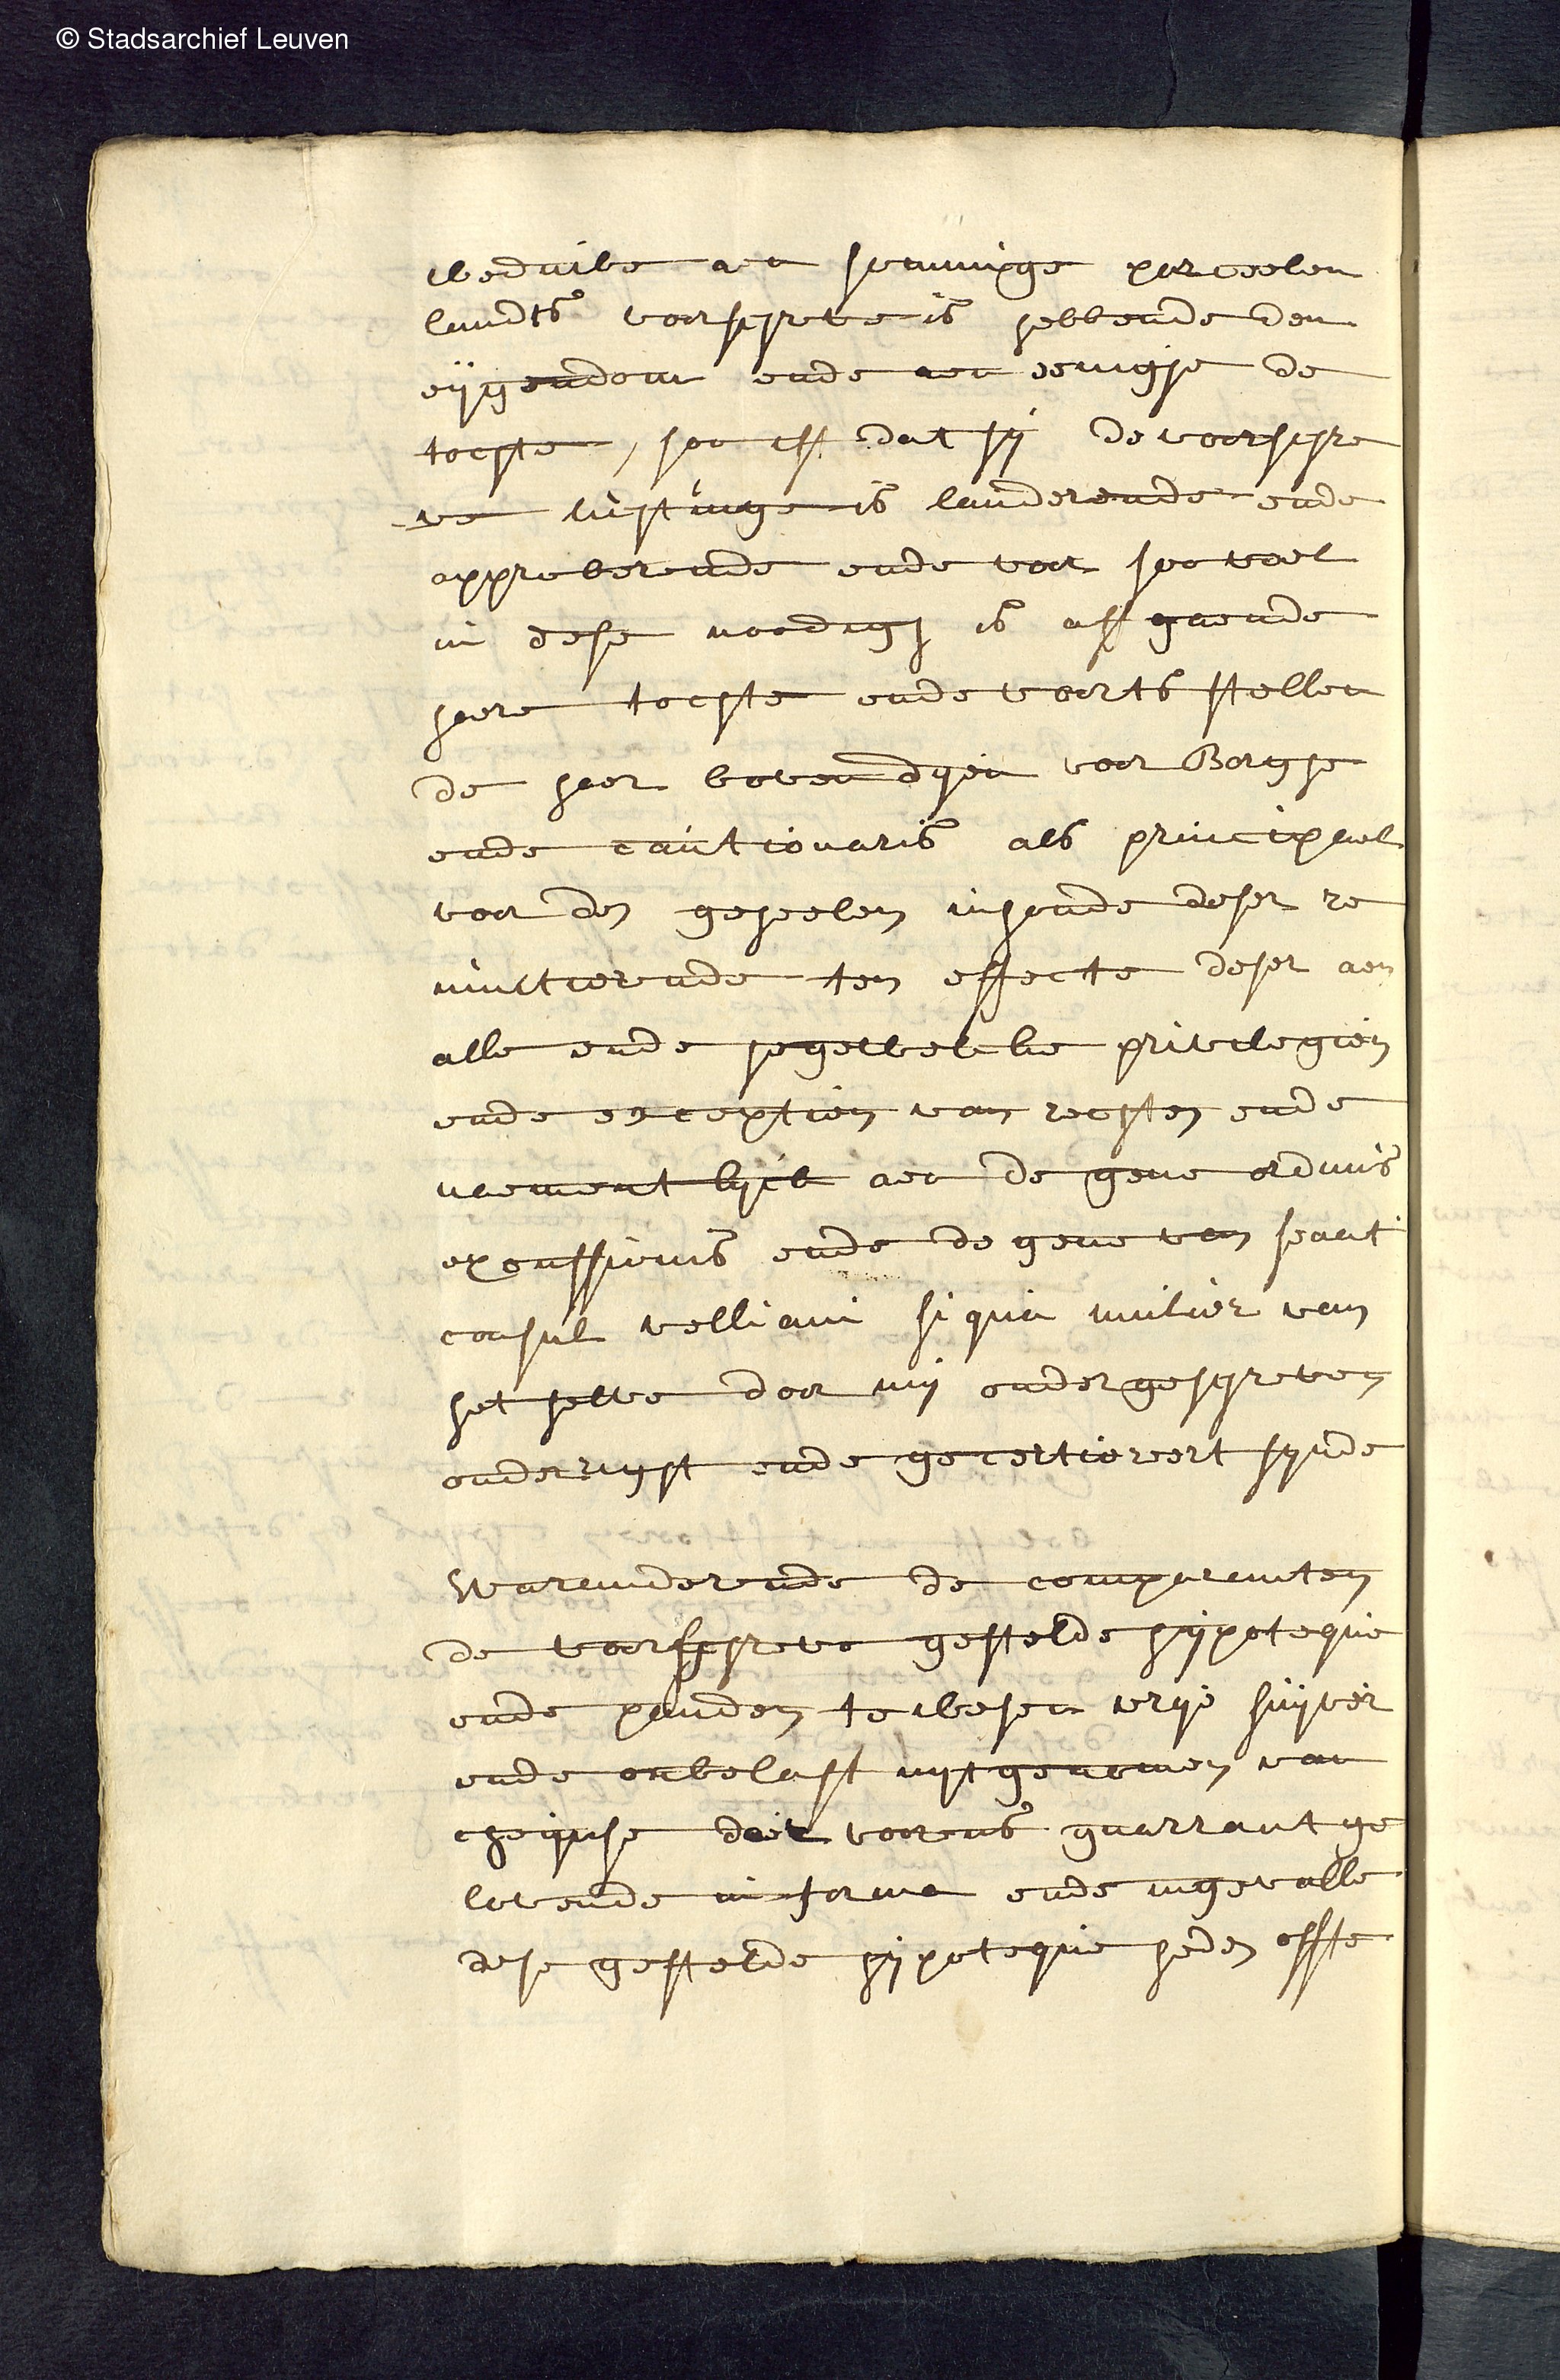 © Stadsarchief Leuven
weduwe aen sommige parceelen
landts voorschreve is hebbende den
eijgendom ende aen eenighe de
tochte, soo ist dat sij de voorschre
ve lichtinge is lauderende ende
approberende ende voor soo veel
in dese noodigh is aff gaende
haere tochte ende voorts stellen
de haer boven dyen voor Borghe
ende cautionaris als principael
voor den geheelen inhoude deser re
nunctierende ten effecte deser aen
alle ende jegewelcke privilegien
ende exceptien van rechten ende
naementlijck aen de gene ordinis
excussionis ende de gene van senati
consul velliani si qua mulier van
het selve door mij ondergeschreven
onderricht ende gecertioreert sijnde
Waranderende de comparanten
de voorschreve gestelde hijpoteque
ende panden te wesen vrije suijver
ende onbelast uijtgenomen van
chijnse daer voorens guarrant ge
lovende in forma ende ingevalle
dese gestelde hijpoteque heden offte